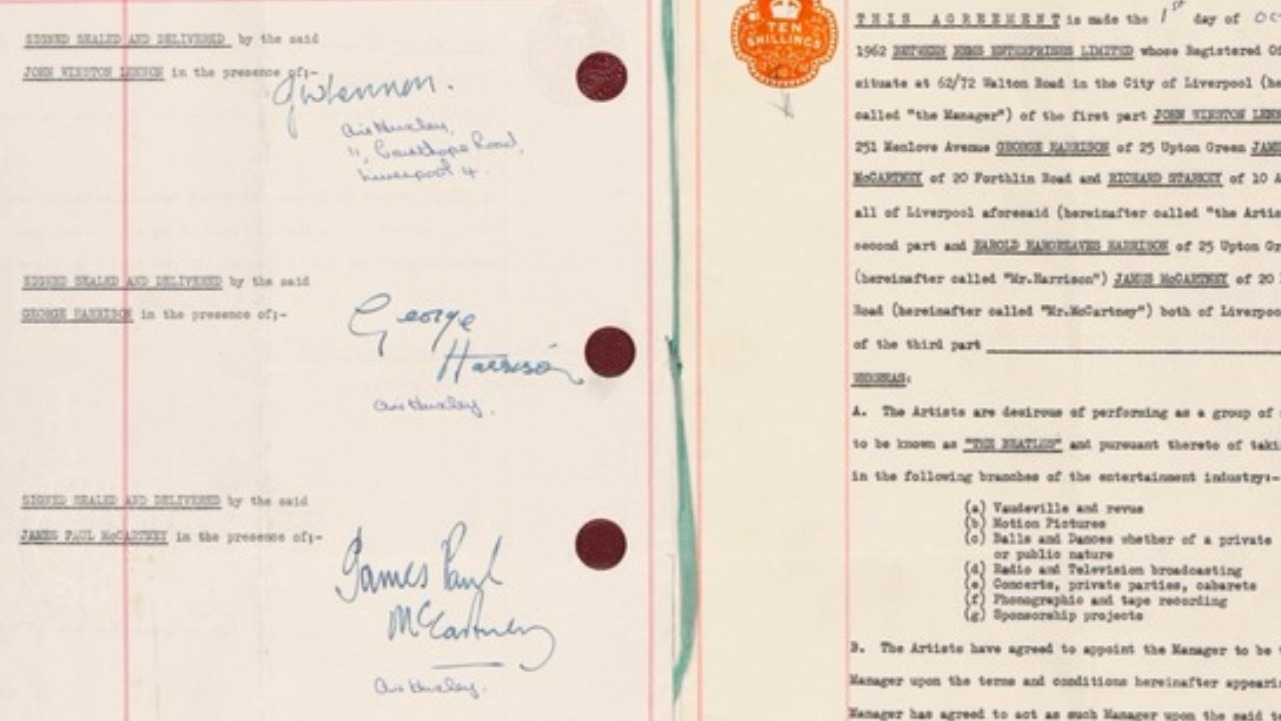 SIGNED SEALED AND DELIVERED by the said
JOHN WINSTON LENNON in the presence of:-
JWLennon.
Liverpool 4.
SIGNED SEALED AND DELIVERED by the said
GEORGE HARRISON in the presence of:-
George
Harrison
SIGNED SEALED AND DELIVERED by the said
JAMES PAUL McCARTNEY in the presence of:-
James Paul
McCartney
TEN
SHILLINGS
THIS AGREEMENT is made the 1st day of
1962 BETWEEN NEMS ENTERPRISES LIMITED whose Registered
situate at 62/72 Walton Road in the City of Liverpool
called "the Manager") of the first part JOHN WINSTON
251 Menlove Avenue GEORGE HARRISON of 25 Upton Green
McCARTNEY of 20 Forthlin Road and RICHARD STARKEY of 10
all of Liverpool aforesaid (hereinafter called "the
second part and HAROLD HARGREAVES HARRISON of 25 Upton
(hereinafter called "Mr.Harrison") JAMES McCARTNEY of 20
Road (hereinafter called "Mr.McCartney") both of
of the third part
WHEREAS:
A. The Artists are desirous of performing as a group of
to be known as "THE BEATLES" and pursuant thereto of
in the following branches of the entertainment industry:-
(a) Vaudeville and revue
(b) Motion Pictures
(c) Balls and Dances whether of a private
or public nature
(d) Radio and Television broadcasting
(e) Concerts, private parties, cabarets
(f) Phonographic and tape recording
(g) Sponsorship projects
B. The Artists have agreed to appoint the Manager to be
Manager upon the terms and conditions hereinafter
Manager has agreed to act as such Manager upon the said